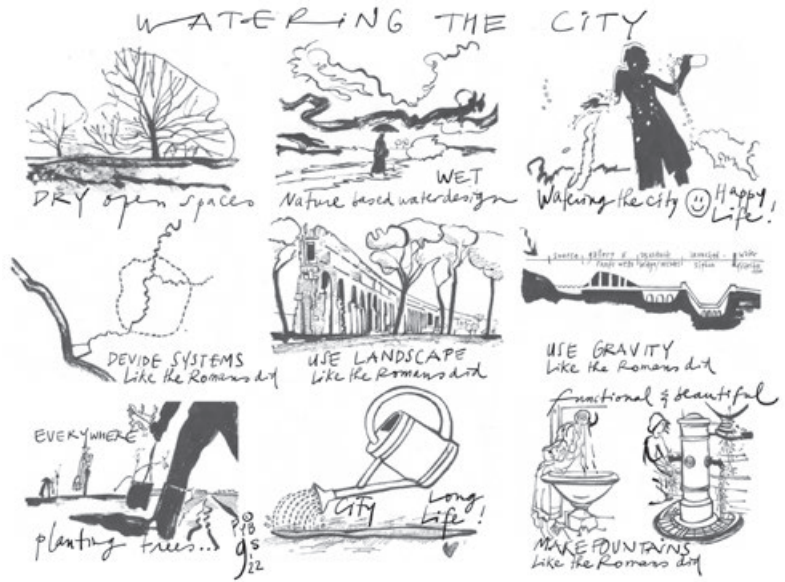 WATERING THE CITY
DRY open spaces
WET
Nature based waterdesign
Watering the city
Happy
Life!
DEVIDE SYSTEMS
Like the Romans did
USE LANDSCAPE
Like the Romans did
source
gallery &
siphon
water
USE GRAVITY
Like the Romans did
EVERYWHERE
planting trees...
©
PvB
22
City
Long
Life!
functional & beautiful
MAKE FOUNTAINS
Like the Romans did